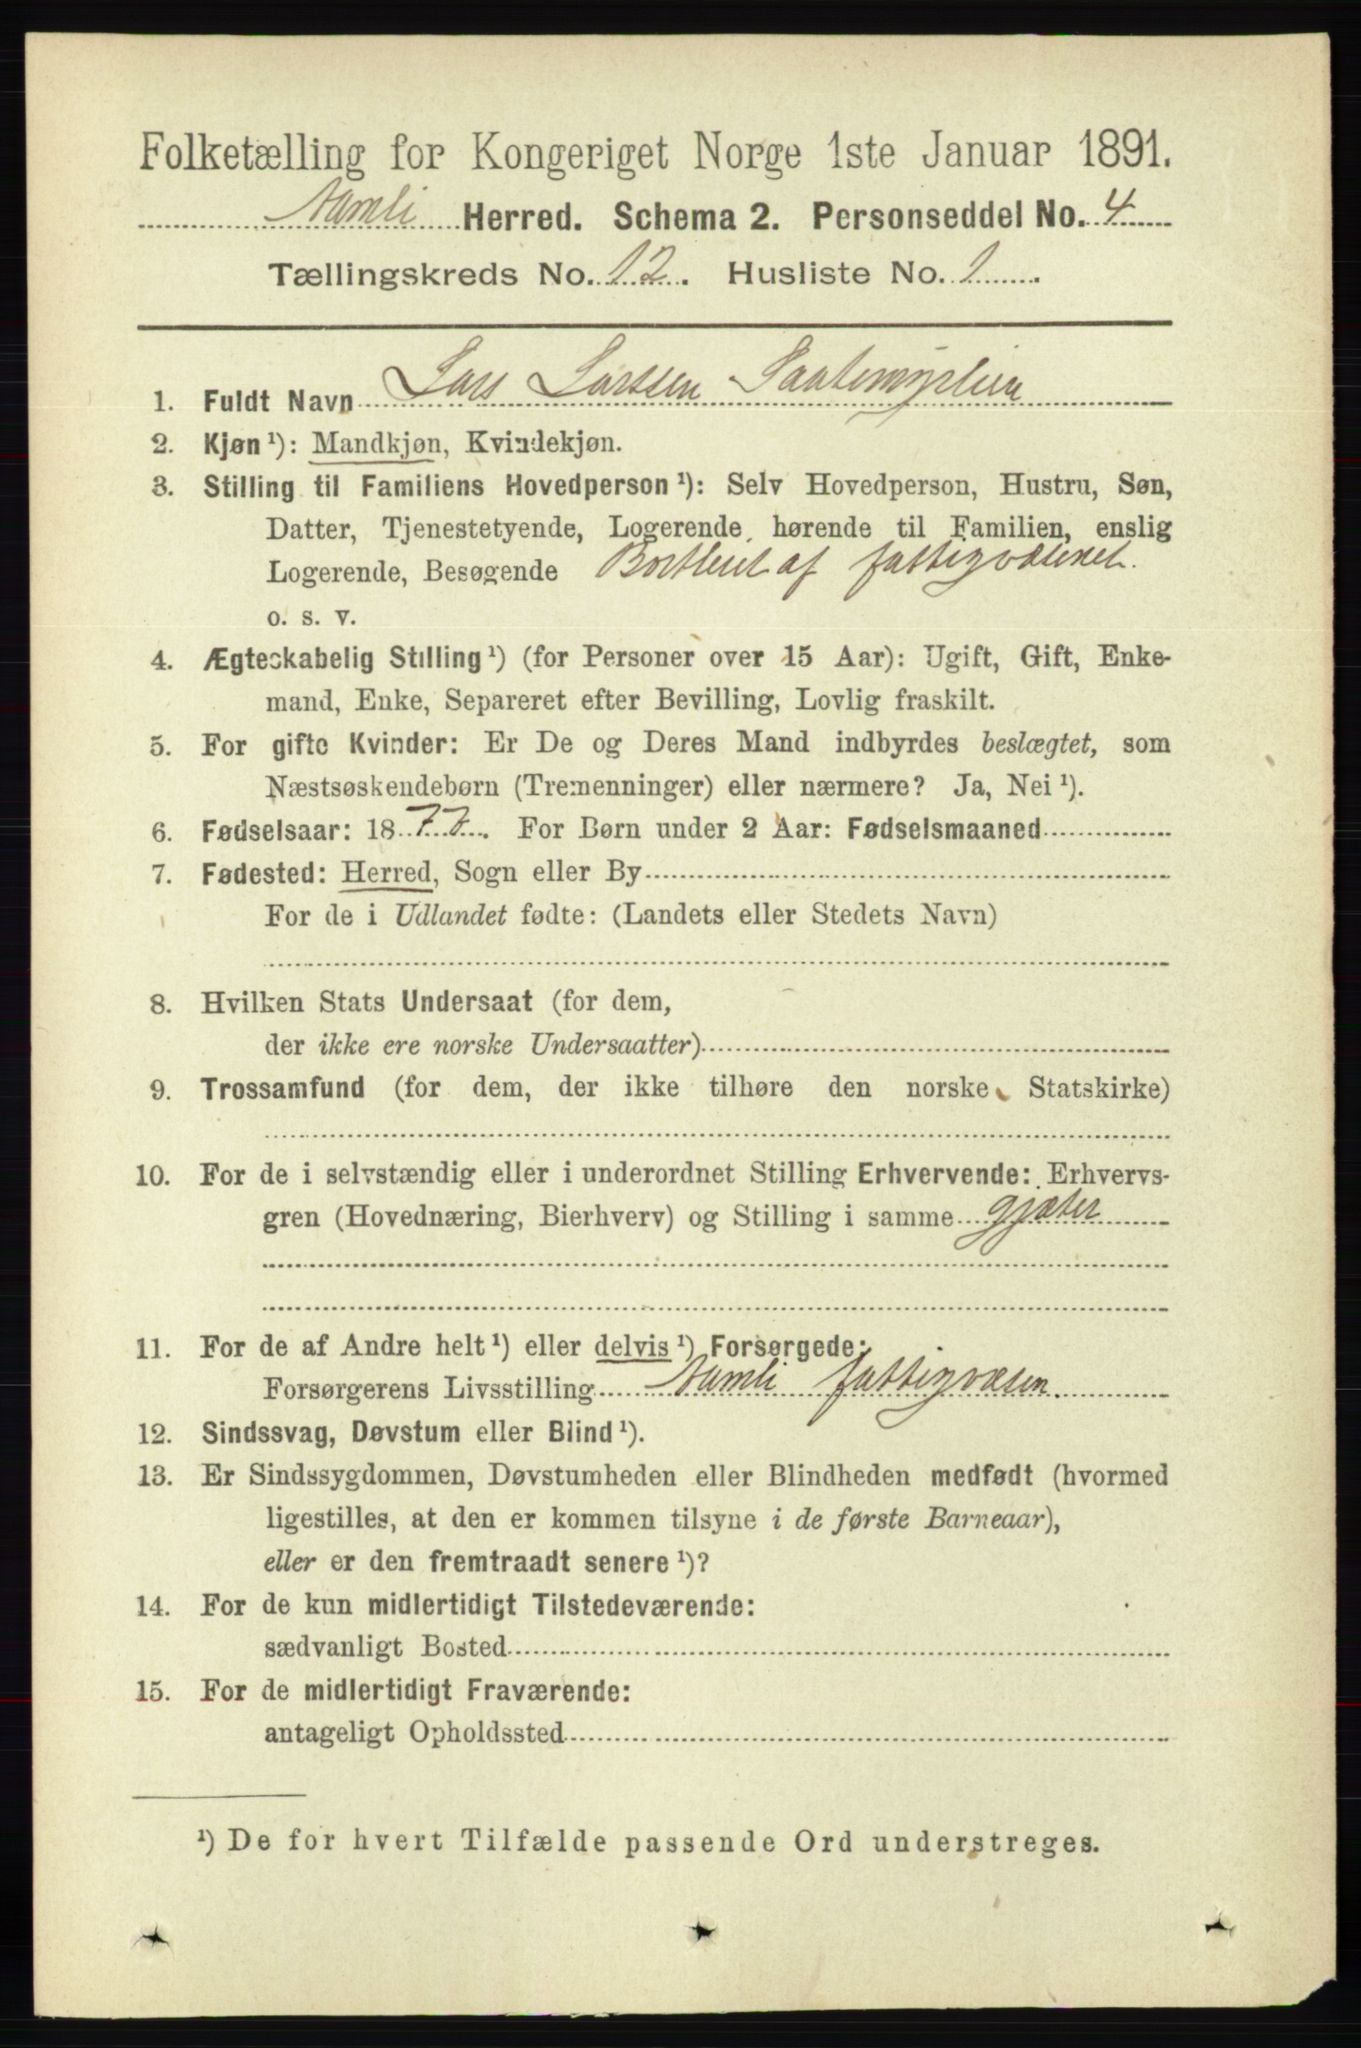 Folketælling for Kongeriget Norge 1ste Januar 1891.
Aamli Herred. Schema 2. Personseddel No. 4
Tællingskreds No. 12. Husliste No. 1
1. Fuldt Navn Lars Larssen Saatemyrlien
2. Kjøn ¹): Mandkjøn, Kvindekjøn.
3. Stilling til Familiens Hovedperson ¹): Selv Hovedperson, Hustru, Søn,
Datter, Tjenestetyende, Logerende hørende til Familien, enslig
Logerende, Besøgende Bortleiet af fattigvæsenet.
o. s. v.
4. Ægteskabelig Stilling ¹) (for Personer over 15 Aar): Ugift, Gift, Enke-
mand, Enke, Separeret efter Bevilling, Lovlig fraskilt.
5. For gifte Kvinder: Er De og Deres Mand indbyrdes beslægtet, som
Næstsøskendebørn (Tremenninger) eller nærmere? Ja, Nei ¹).
6. Fødselsaar: 1877. For Børn under 2 Aar: Fødselsmaaned
7. Fødested: Herred, Sogn eller By
For de i Udlandet fødte: (Landets eller Stedets Navn)
8. Hvilken Stats Undersaat (for dem,
der ikke ere norske Undersaatter)
9. Trossamfund (for dem, der ikke tilhøre den norske Statskirke)
10. For de i selvstændig eller i underordnet Stilling Erhvervende: Erhvervs-
gren (Hovednæring, Bierhverv) og Stilling i samme gjæter
11. For de af Andre helt ¹) eller delvis ¹) Forsørgede:
Forsørgerens Livsstilling Aamli fattigvæsen.
12. Sindssvag, Døvstum eller Blind ¹).
13. Er Sindssygdommen, Døvstumheden eller Blindheden medfødt (hvormed
ligestilles, at den er kommen tilsyne i de første Barneaar),
eller er den fremtraadt senere ¹)?
14. For de kun midlertidigt Tilstedeværende:
sædvanligt Bosted
15. For de midlertidigt Fraværende:
antageligt Opholdssted
¹) De for hvert Tilfælde passende Ord understreges.